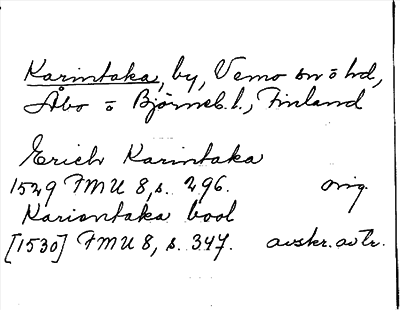 Karintaka, by, Vemo sn o hd,
Åbo o Björneb. l., Finland
Erich Karintaka
1529 FMU 8, s. 296. orig.
Kariontaka bool
[1530] FMU 8, s. 347. avskr. av tr.